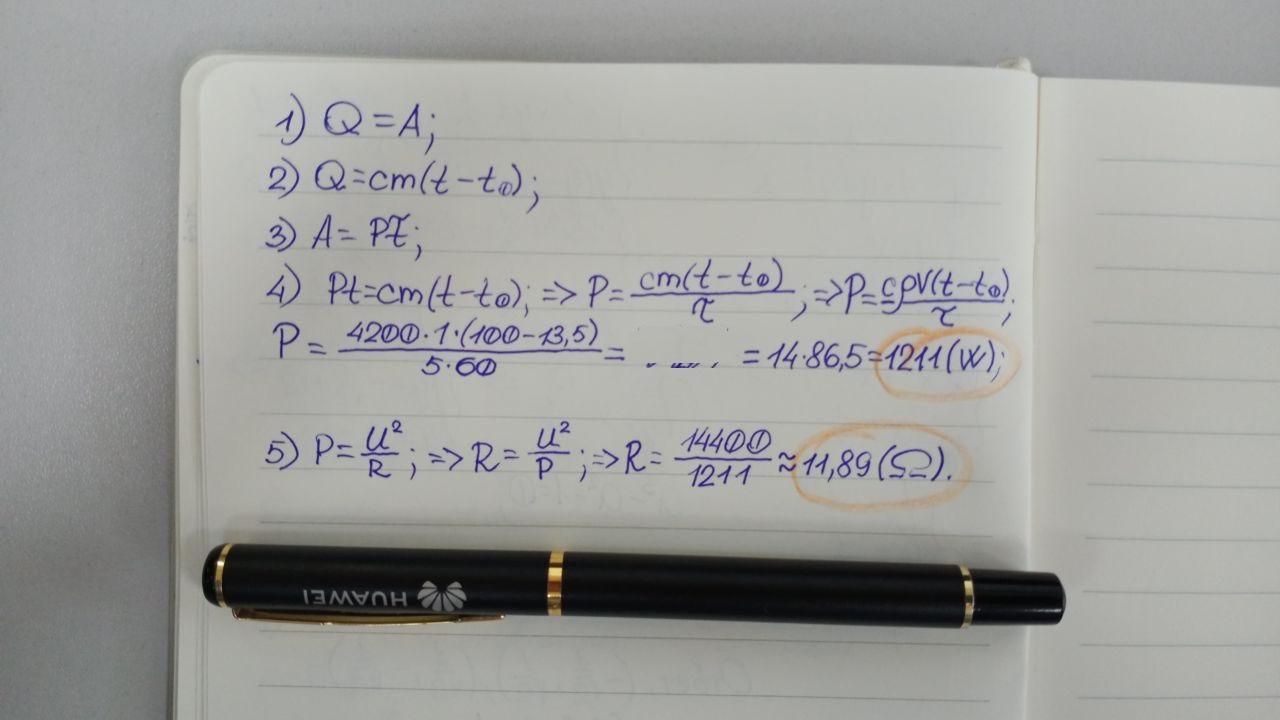 1) Q = A;
2) Q = cm(t - t₀);
3) A = Pτ;
4) Pt = cm(t - t₀); => P = cm(t - t₀)/τ; => P = cρV(t - t₀)/τ;
P = 4200·1·(100 - 13,5)/5·60 = = 14·86,5 = 1211 (W);
5) P = U²/R; => R = U²/P; => R = 14400/1211 ≈ 11,89 (Ω).
HUAWEI